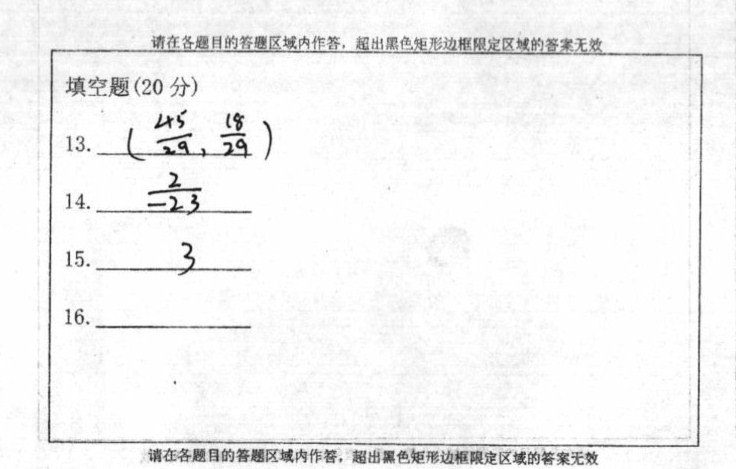 请在各题目的答题区域内作答，超出黑色矩形边框限定区域的答案无效
填空题(20 分)
13. (45/29, 18/29)
14. 2/-23
15. 3
16.
请在各题目的答题区域内作答，超出黑色矩形边框限定区域的答案无效